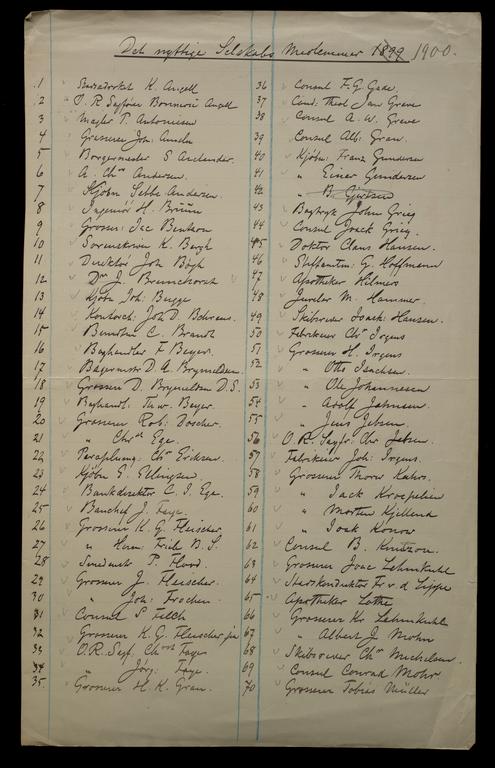 Det nyttige Selskabs Medlemmer 1899 1900.
1 Stadsarkitekt K. Angell
2 O. R. Sagfører Angell
3 T. Antoniesen
4 Grosserer Joh.
5 Borgermester S
6 A. Chr Andersen.
7 Kjøbm Andersen.
8 Ingeniør H.
9 Grosser: Jac
10 Sorenskriver K. Bergh
11 Direktør Joh Bøgh
12 Dr J. Brunchorst
13 Kjøbm Joh: Bugge
14 Joh D. Behrens
15 C. Brandt
16 Boghandler F Beyer
17 Bagermstr D. A. Brynildsen
18 Grosserer D. Brynildsen D. S.
19 Boghandl: Beyer.
20 Grosserer Rob: Döscher.
21 " Chr Ege.
22 Chr Eriksen
23 Kjøbm E. Ellingsen
24 Bankdirektør C. I. Ege.
25 J. Faye.
26 Grosserer K. G. Fleischer.
27 " Herm: Friele B. S.
28 P Flood.
29 Grosserer J. Fleischer.
30 " Joh:
31 Consul S
32 Grosserer K. G. Fleischer jr
33 O. R. Sagf: Faye
34 " Jørg: Faye.
35. Grosserer H. K. Gran.
36 Consul F. G. Gade.
37 Cand. Theol Jan Greve
38 Consul A. W. Greve
39 Consul Alb: Gran.
40 Kjøbm: Franz Gundersen
41 " Einar Gundersen
42 " B. Gjertsen
43 Bogtryk John Grieg
44 Consul Joach Grieg.
45 Doktor Claus Hansen.
46 G. Hoffmann
47 Apotheker
48 M. Hammer.
49 Skibsreder Joach: Hansen.
50 Fabrikeier Chr Irgens
51 Grosserer H. Irgens
52 " Otto Isachsen.
53 " Ole Johannesen
54 " Adolf Jahnsen.
55 " Jens Jebsen.
56 O. R. Sagfr: Chr Jebsen.
57 Fabrikeier Joh: Irgens.
58 Grosserer Kahrs.
59 " Jack Kroepelien
60 " Morten Kjelland
61 " Joak Konow
62 Consul B. Knudtzon.
63 Grosserer Joac Lehmkuhl
64 Fr v. d Lippe
65 Apotheker Lothe
66 Grosserer Kr Lehmkuhl
67 " Albert J. Mohn
68 Skibsreder Chr Michelsen.
69 Consul Conrad Mohr
70 Grosserer Tobias Müller